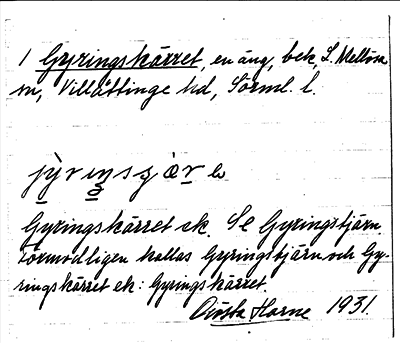 1 Gyringskärret, en äng, bek, L. Mellösa
sn, Villåttinge hd, Sörml. l.
Gyringskärret sk. Se Gyringstjärn.
Förmodligen kallas Gyringstjärn och Gy-
ringskärret ek: Gyringskärret.
Gösta Horne 1931.